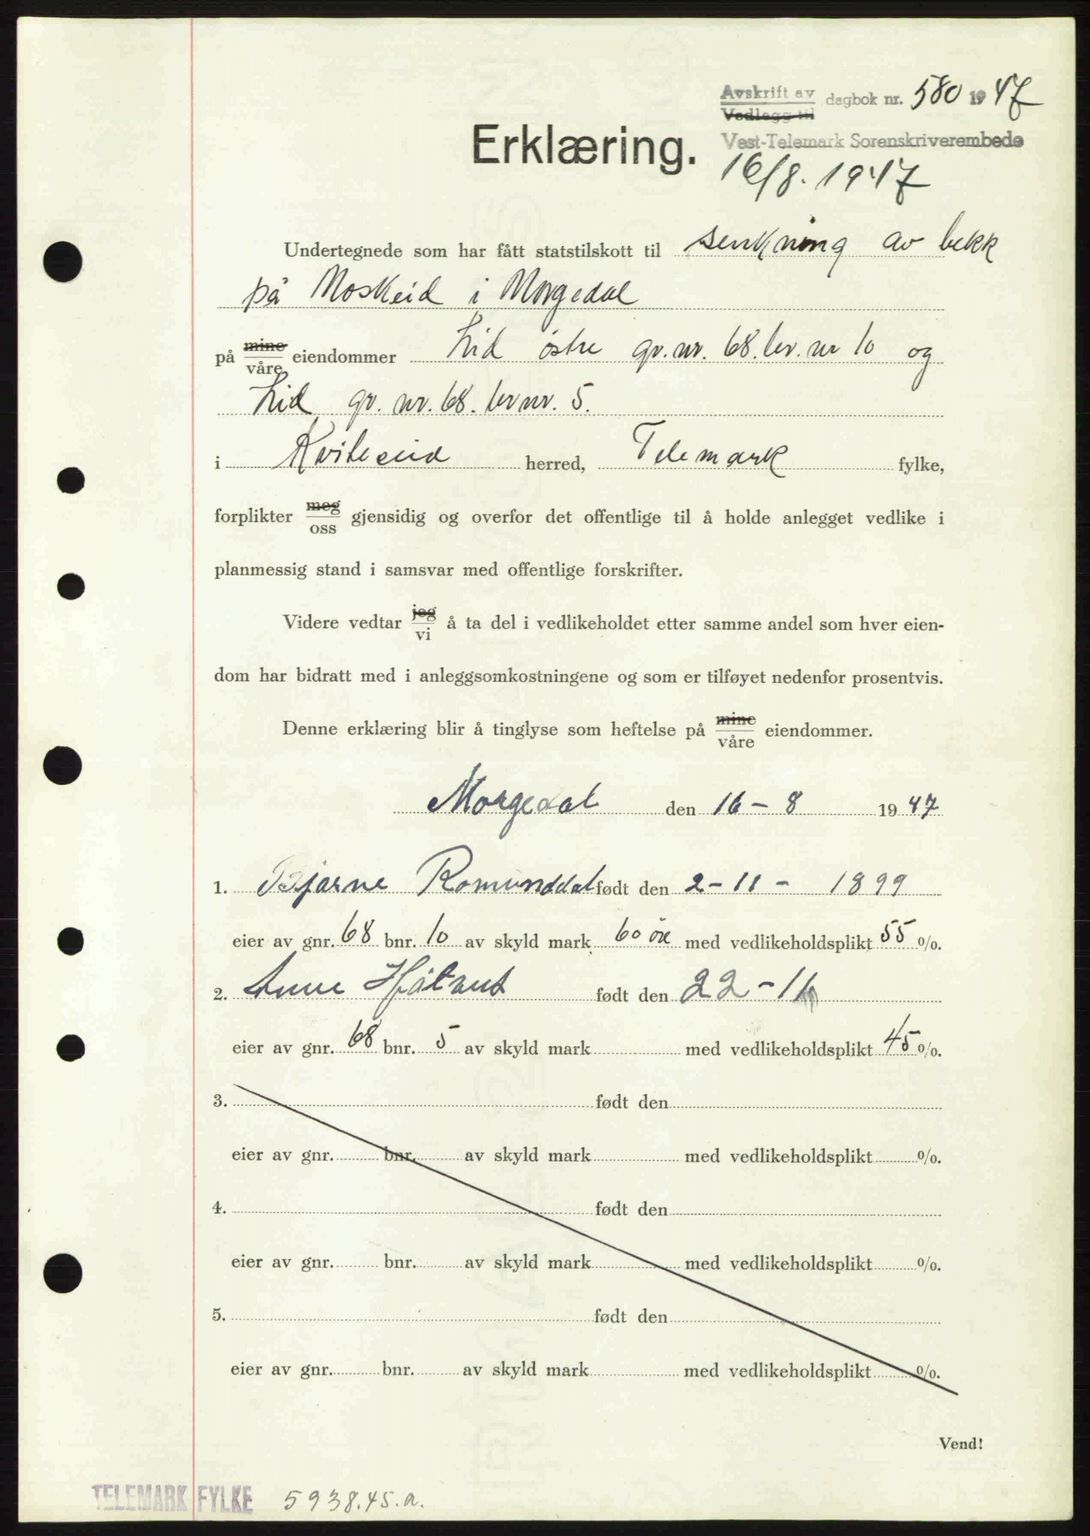 Avskrift av
Vedlegg til dagbok nr. 580 1947
Vest-Telemark Sorenskriverembede
16/8. 1947
Erklæring.
Undertegnede som har fått statstilskott til senkning av bekk
på Moskeid i Morgedal
på mine våre eiendommer Lid østre gr.nr. 68. br. nr 10 og
Lid gr. nr. 68. br nr. 5.
i Kviteseid herred, Telemark fylke,
forplikter meg oss gjensidig og overfor det offentlige til å holde anlegget vedlike i
planmessig stand i samsvar med offentlige forskrifter.
Videre vedtar jeg vi å ta del i vedlikeholdet etter samme andel som hver eien-
dom har bidratt med i anleggsomkostningene og som er tilføyet nedenfor prosentvis.
Denne erklæring blir å tinglyse som heftelse på mine våre eiendommer.
Morgedal den 16 - 8 1947
1. Bjarne Romunddal født den 2-11- 1899
eier av gnr. 68 bnr. 10 av skyld mark 60 øre med vedlikeholdsplikt 55 %.
2. Anne født den 22-11
eier av gnr. 68 bnr. 5 av skyld mark med vedlikeholdsplikt 45 %.
3. født den
eier av gnr. bnr. av skyld mark med vedlikeholdsplikt %.
4. født den
eier av gnr. bnr. av skyld mark med vedlikeholdsplikt %.
5. født den
eier av gnr. bnr. av skyld mark med vedlikeholdsplikt %.
Vend!
TELEMARK FYLKE 5938.45.a.